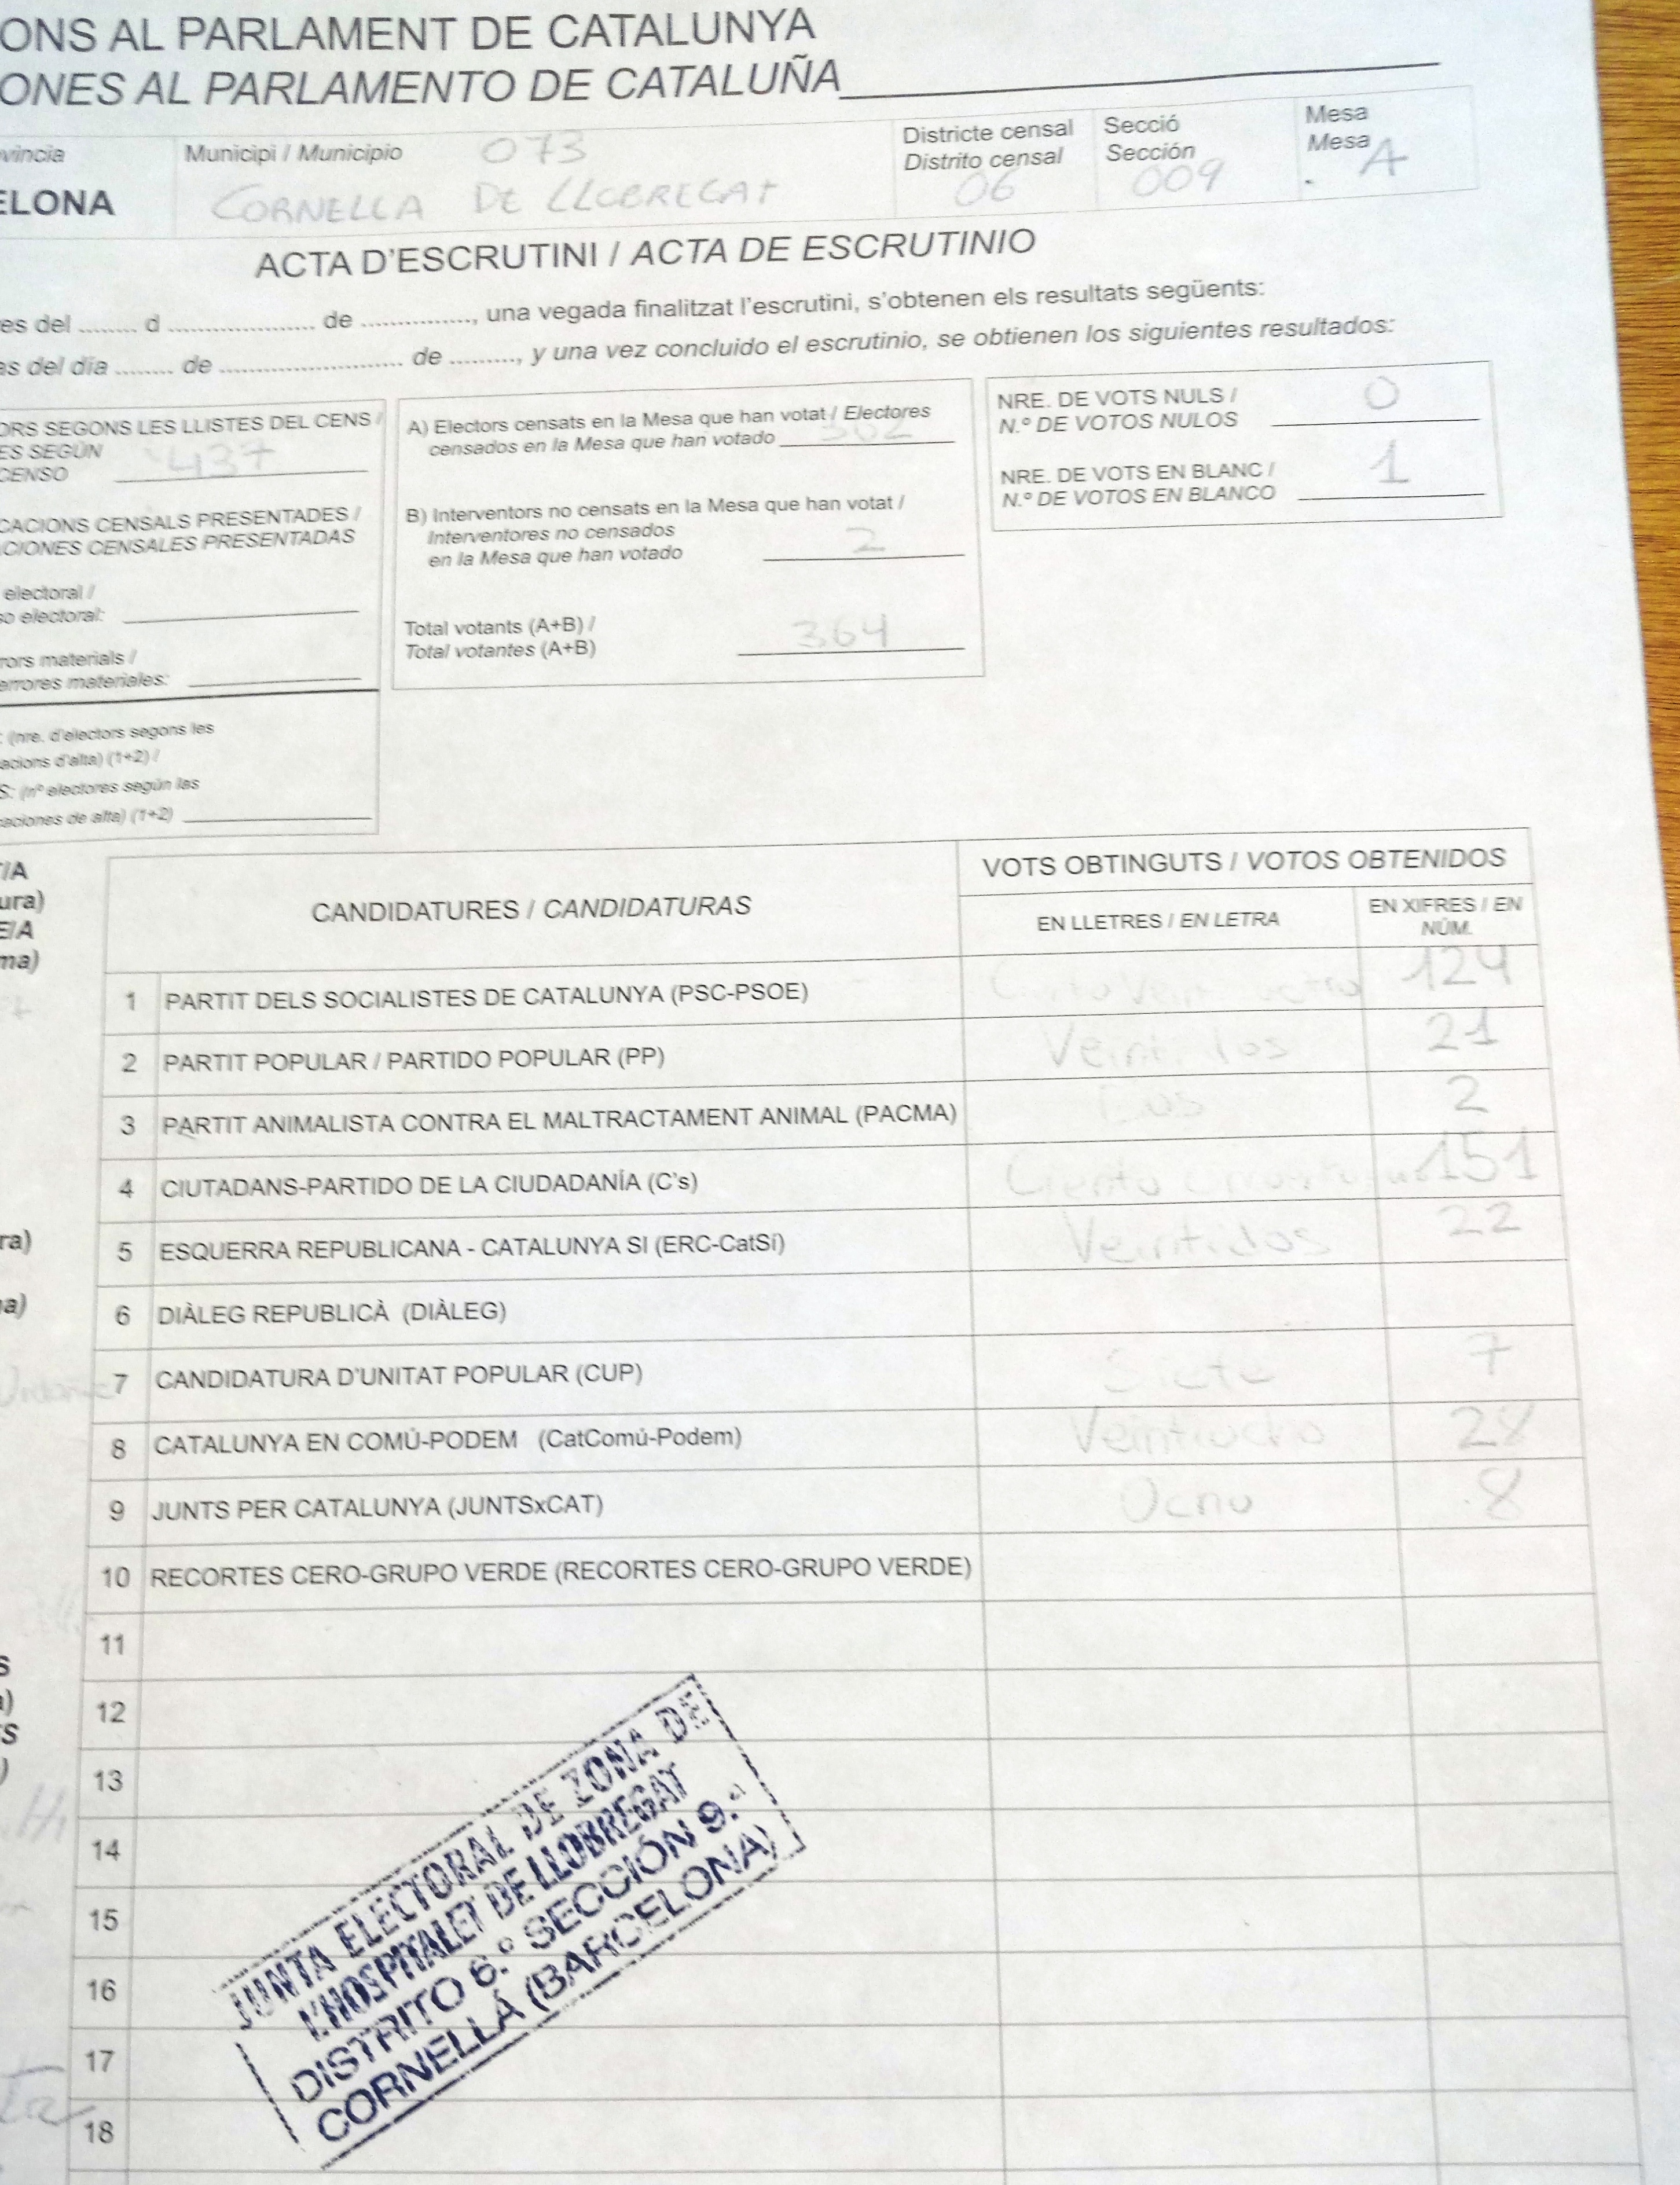 ONS AL PARLAMENT DE CATALUNYA
ONES AL PARLAMENTO DE CATALUÑA
vincia
ELONA
Municipi / Municipio 073
CORNELLA DE LLOBREGAT
Districte censal
Distrito censal
06
Secció
Sección
009
Mesa
Mesa
A
ACTA D'ESCRUTINI / ACTA DE ESCRUTINIO
es del ........ d .................... de ..............., una vegada finalitzat l'escrutini, s'obtenen els resultats següents:
as del día ........ de ......................... de ........., y una vez concluido el escrutinio, se obtienen los siguientes resultados:
ORS SEGONS LES LLISTES DEL CENS /
ES SEGÚN
CENSO 437
CACIONS CENSALS PRESENTADES /
CIONES CENSALES PRESENTADAS
electoral /
so electoral:
rors materials /
errores materiales:
: (nre. d'electors segons les
acions d'alta) (1+2) /
S: (nº electores según las
caciones de alta) (1+2)
A) Electors censats en la Mesa que han votat / Electores
censados en la Mesa que han votado 362
B) Interventors no censats en la Mesa que han votat /
Interventores no censados
en la Mesa que han votado 2
Total votants (A+B) /
Total votantes (A+B) 364
NRE. DE VOTS NULS /
N.º DE VOTOS NULOS 0
NRE. DE VOTS EN BLANC /
N.º DE VOTOS EN BLANCO 1
T/A
ura)
E/A
ma)
ra)
a)
CANDIDATURES / CANDIDATURAS
VOTS OBTINGUTS / VOTOS OBTENIDOS
EN LLETRES / EN LETRA
EN XIFRES / EN
NÚM.
1 PARTIT DELS SOCIALISTES DE CATALUNYA (PSC-PSOE) 124
2 PARTIT POPULAR / PARTIDO POPULAR (PP) Veintidos 21
3 PARTIT ANIMALISTA CONTRA EL MALTRACTAMENT ANIMAL (PACMA) Dos 2
4 CIUTADANS-PARTIDO DE LA CIUDADANÍA (C's) Ciento 151
5 ESQUERRA REPUBLICANA - CATALUNYA SI (ERC-CatSí) Veintidos 22
6 DIÀLEG REPUBLICÀ (DIÀLEG)
7 CANDIDATURA D'UNITAT POPULAR (CUP) Siete 7
8 CATALUNYA EN COMÚ-PODEM (CatComú-Podem) Veintiocho 28
9 JUNTS PER CATALUNYA (JUNTSxCAT) Ocho 8
10 RECORTES CERO-GRUPO VERDE (RECORTES CERO-GRUPO VERDE)
11
12
13
14
15
16
17
18
JUNTA ELECTORAL DE ZONA DE
L'HOSPITALET DE LLOBREGAT
DISTRITO 6.º SECCIÓN 9.ª
CORNELLÀ (BARCELONA)